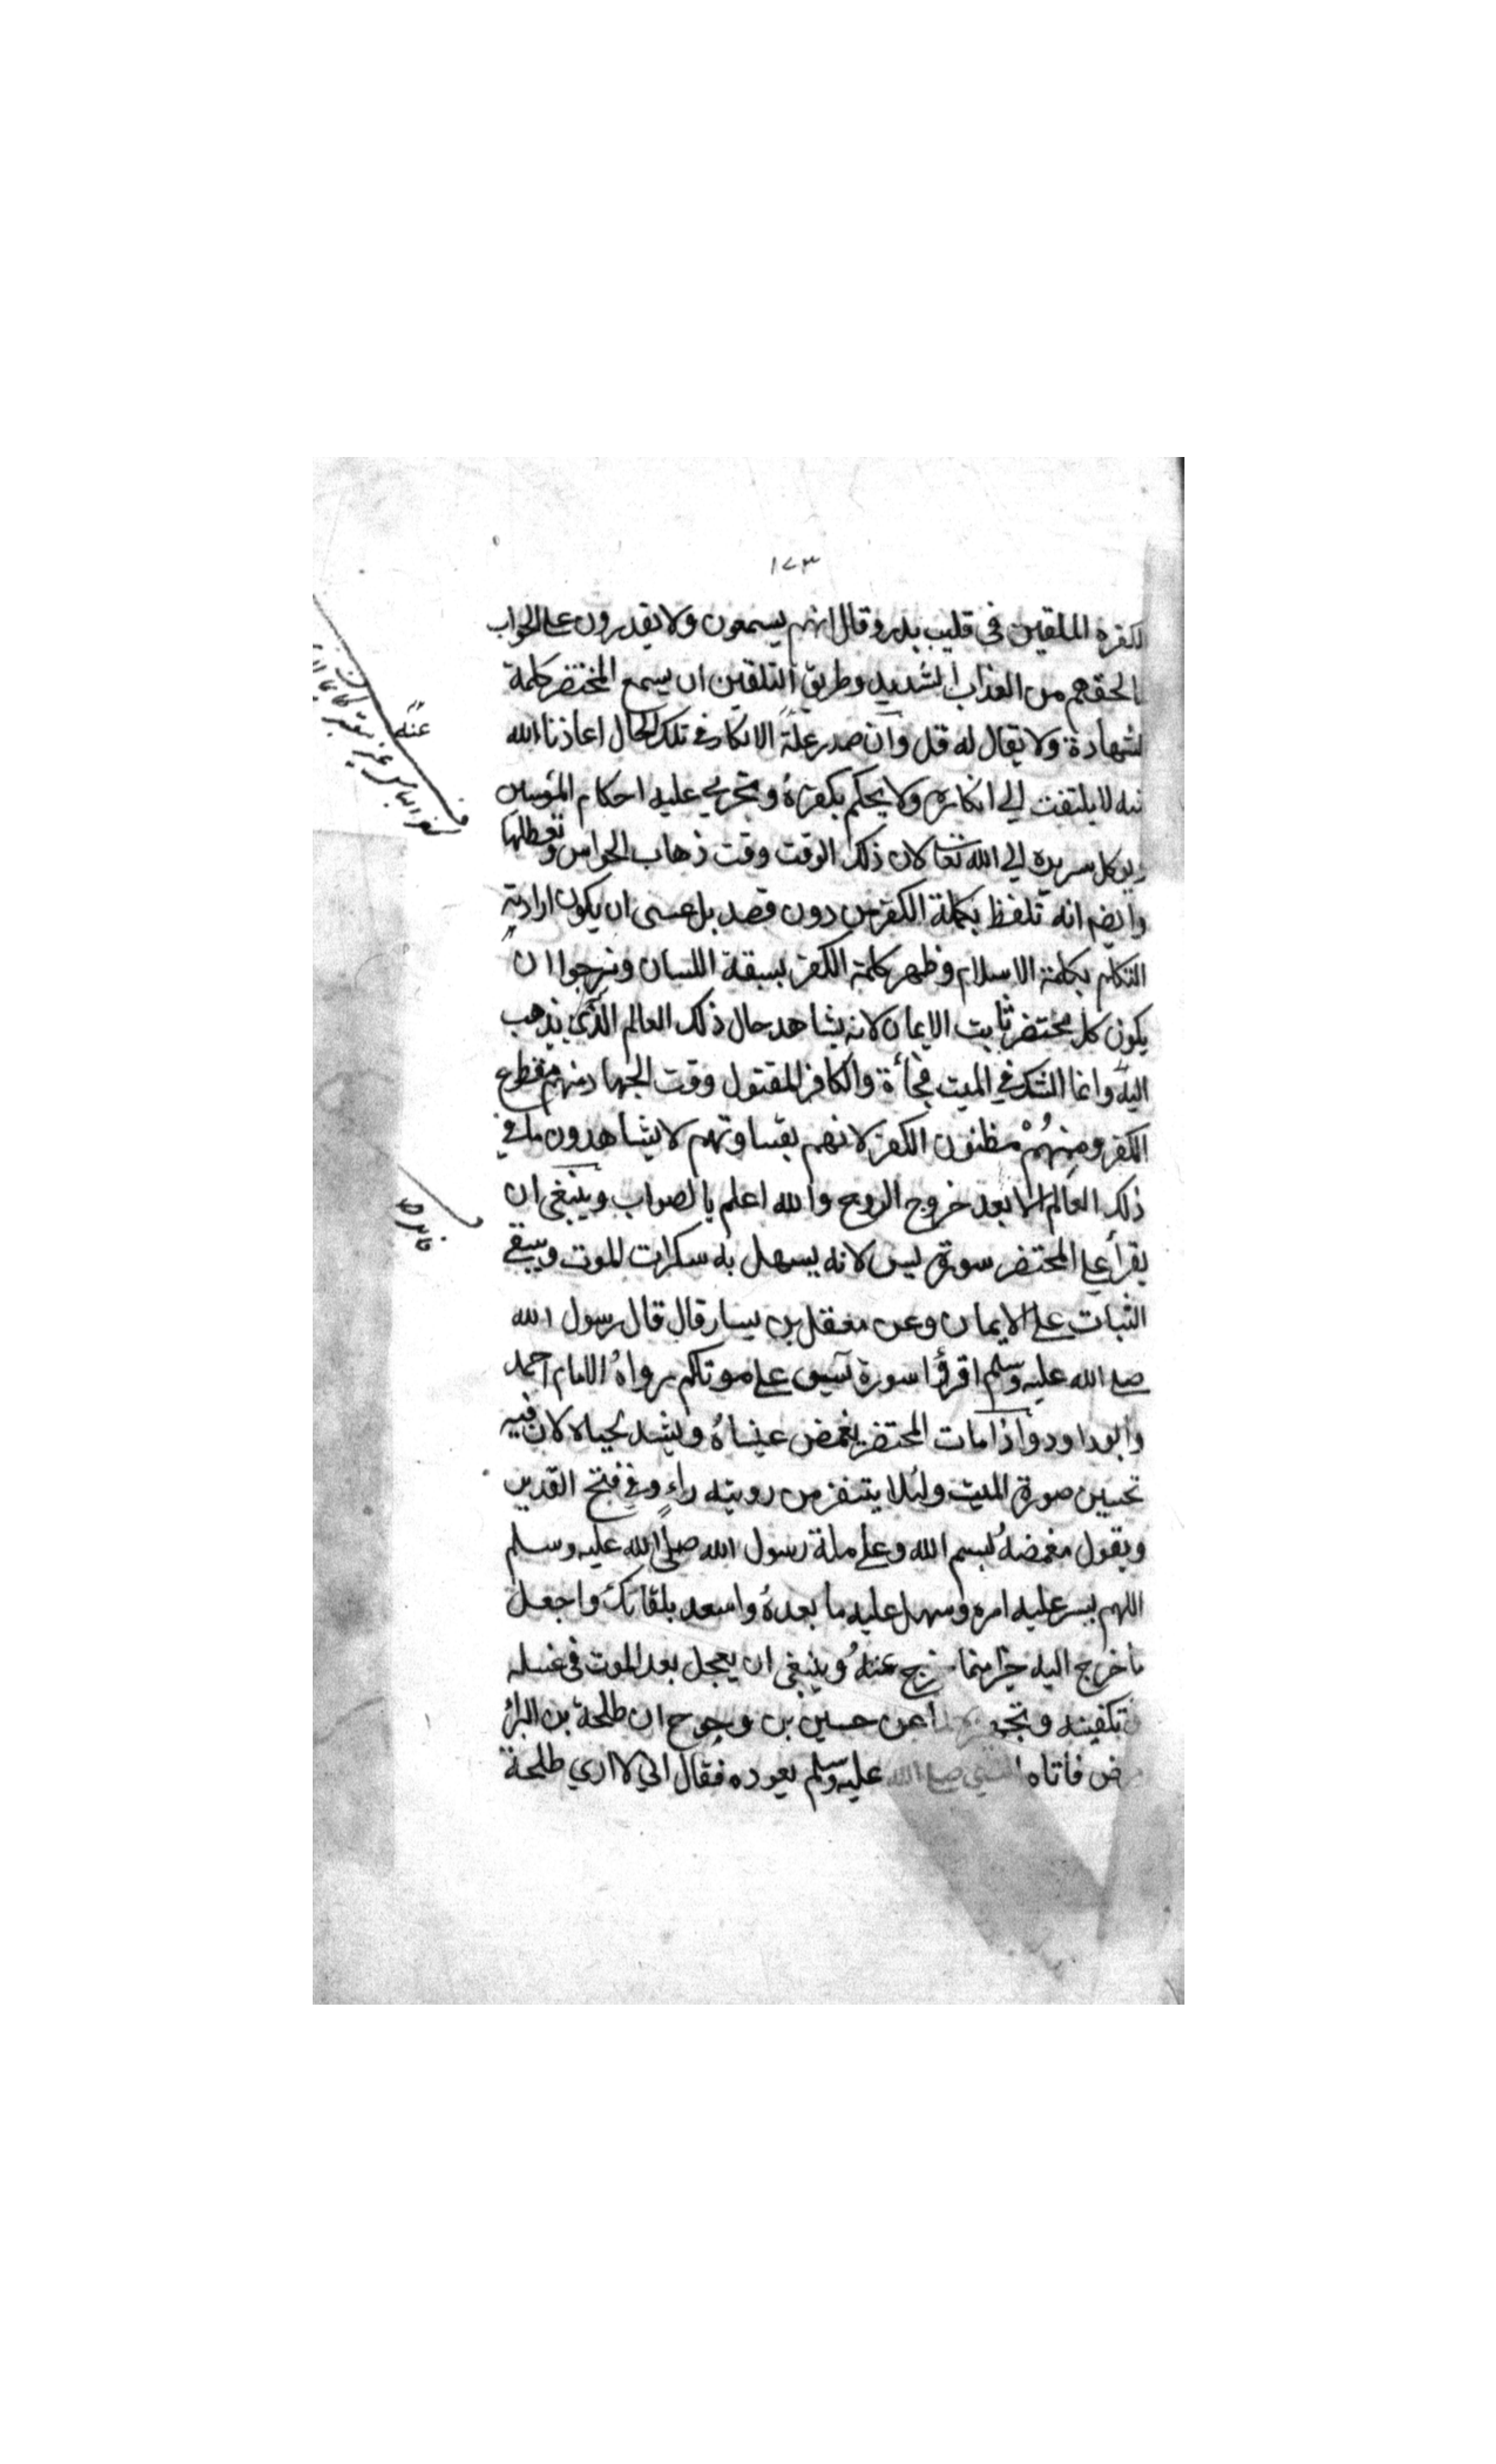 ١٧٣
الكفرة الملقين في قليب بدر وقال انهم يسمعون ولا يقدرون على الجواب
لما لحقهم من العذاب الشديد وطريق التلقين ان يسمع المحتضر كلمة
الشهادة ولا يقال له قل وان صدر علة الانكار في تلك الحال اعاذنا الله
منه لا يلتفت الى انكاره ولا يحكم بكفره ويجري عليه احكام المؤمنين
كل سريره الى الله تعا لان ذلك الوقت وقت ذهاب الحواس وتعطلها
وايضا انه تلفظ بكلمة الكفر من دون قصد بل عسى ان يكون ارادته
التكلم بكلمة الاسلام وظهر كلمة الكفر بسبقة اللسان ونرجوا ان
يكون كل محتضر ثابت الايمان لانه يشاهد حال ذلك العالم الذي يذهب
اليه وانما الشك في الميت فجأة والكافر المقتول وقت الجهاد منهم مقطوع
الكفر ومنهم مظنون الكفر لانهم بقساوتهم لا يشاهدون ما في
ذلك العالم الا بعد خروج الروح والله اعلم بالصواب وينبغي ان
يقرأ على المحتضر سورة يس لانه يسهل به سكرات الموت ويبقى
الثبات على الايمان وعن معقل بن يسار قال قال رسول الله
صلى الله عليه وسلم اقرؤا سورة يس على موتاكم رواه الامام احمد
وابو داود واذا مات المحتضر يغمض عيناه ويشد لحياه لان فيه
تحسين صورة الميت ولئلا يتنفر من رويته راءٍ وفي فتح القدير
ويقول مغمضه بسم الله وعلى ملة رسول الله صلى الله عليه وسلم
اللهم يسر عليه امره وسهل عليه ما بعده واسعد بلقائك واجعل
ما خرج اليه خيرا مما خرج عنه وينبغي ان يعجل بعد الموت في غسله
وتكفينه عن حسين بن وحوح ان طلحة بن البرأ
مرض فاتاه النبي صلى الله عليه وسلم يعوده فقال اني لا اري طلحة
عنه
فايده